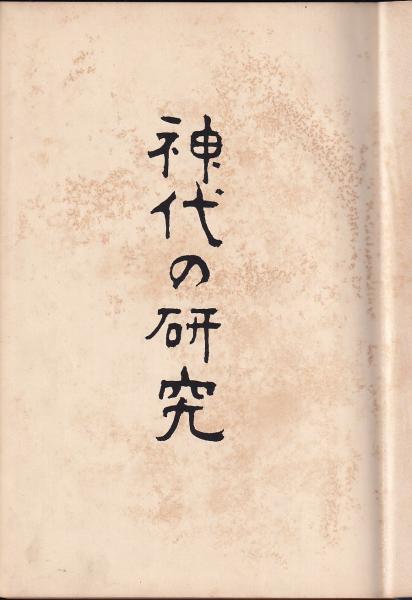 神代の研究